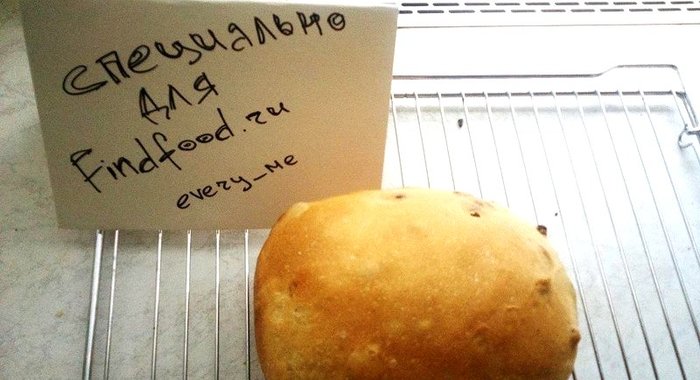 специально
для
Findfood.ru
every_me